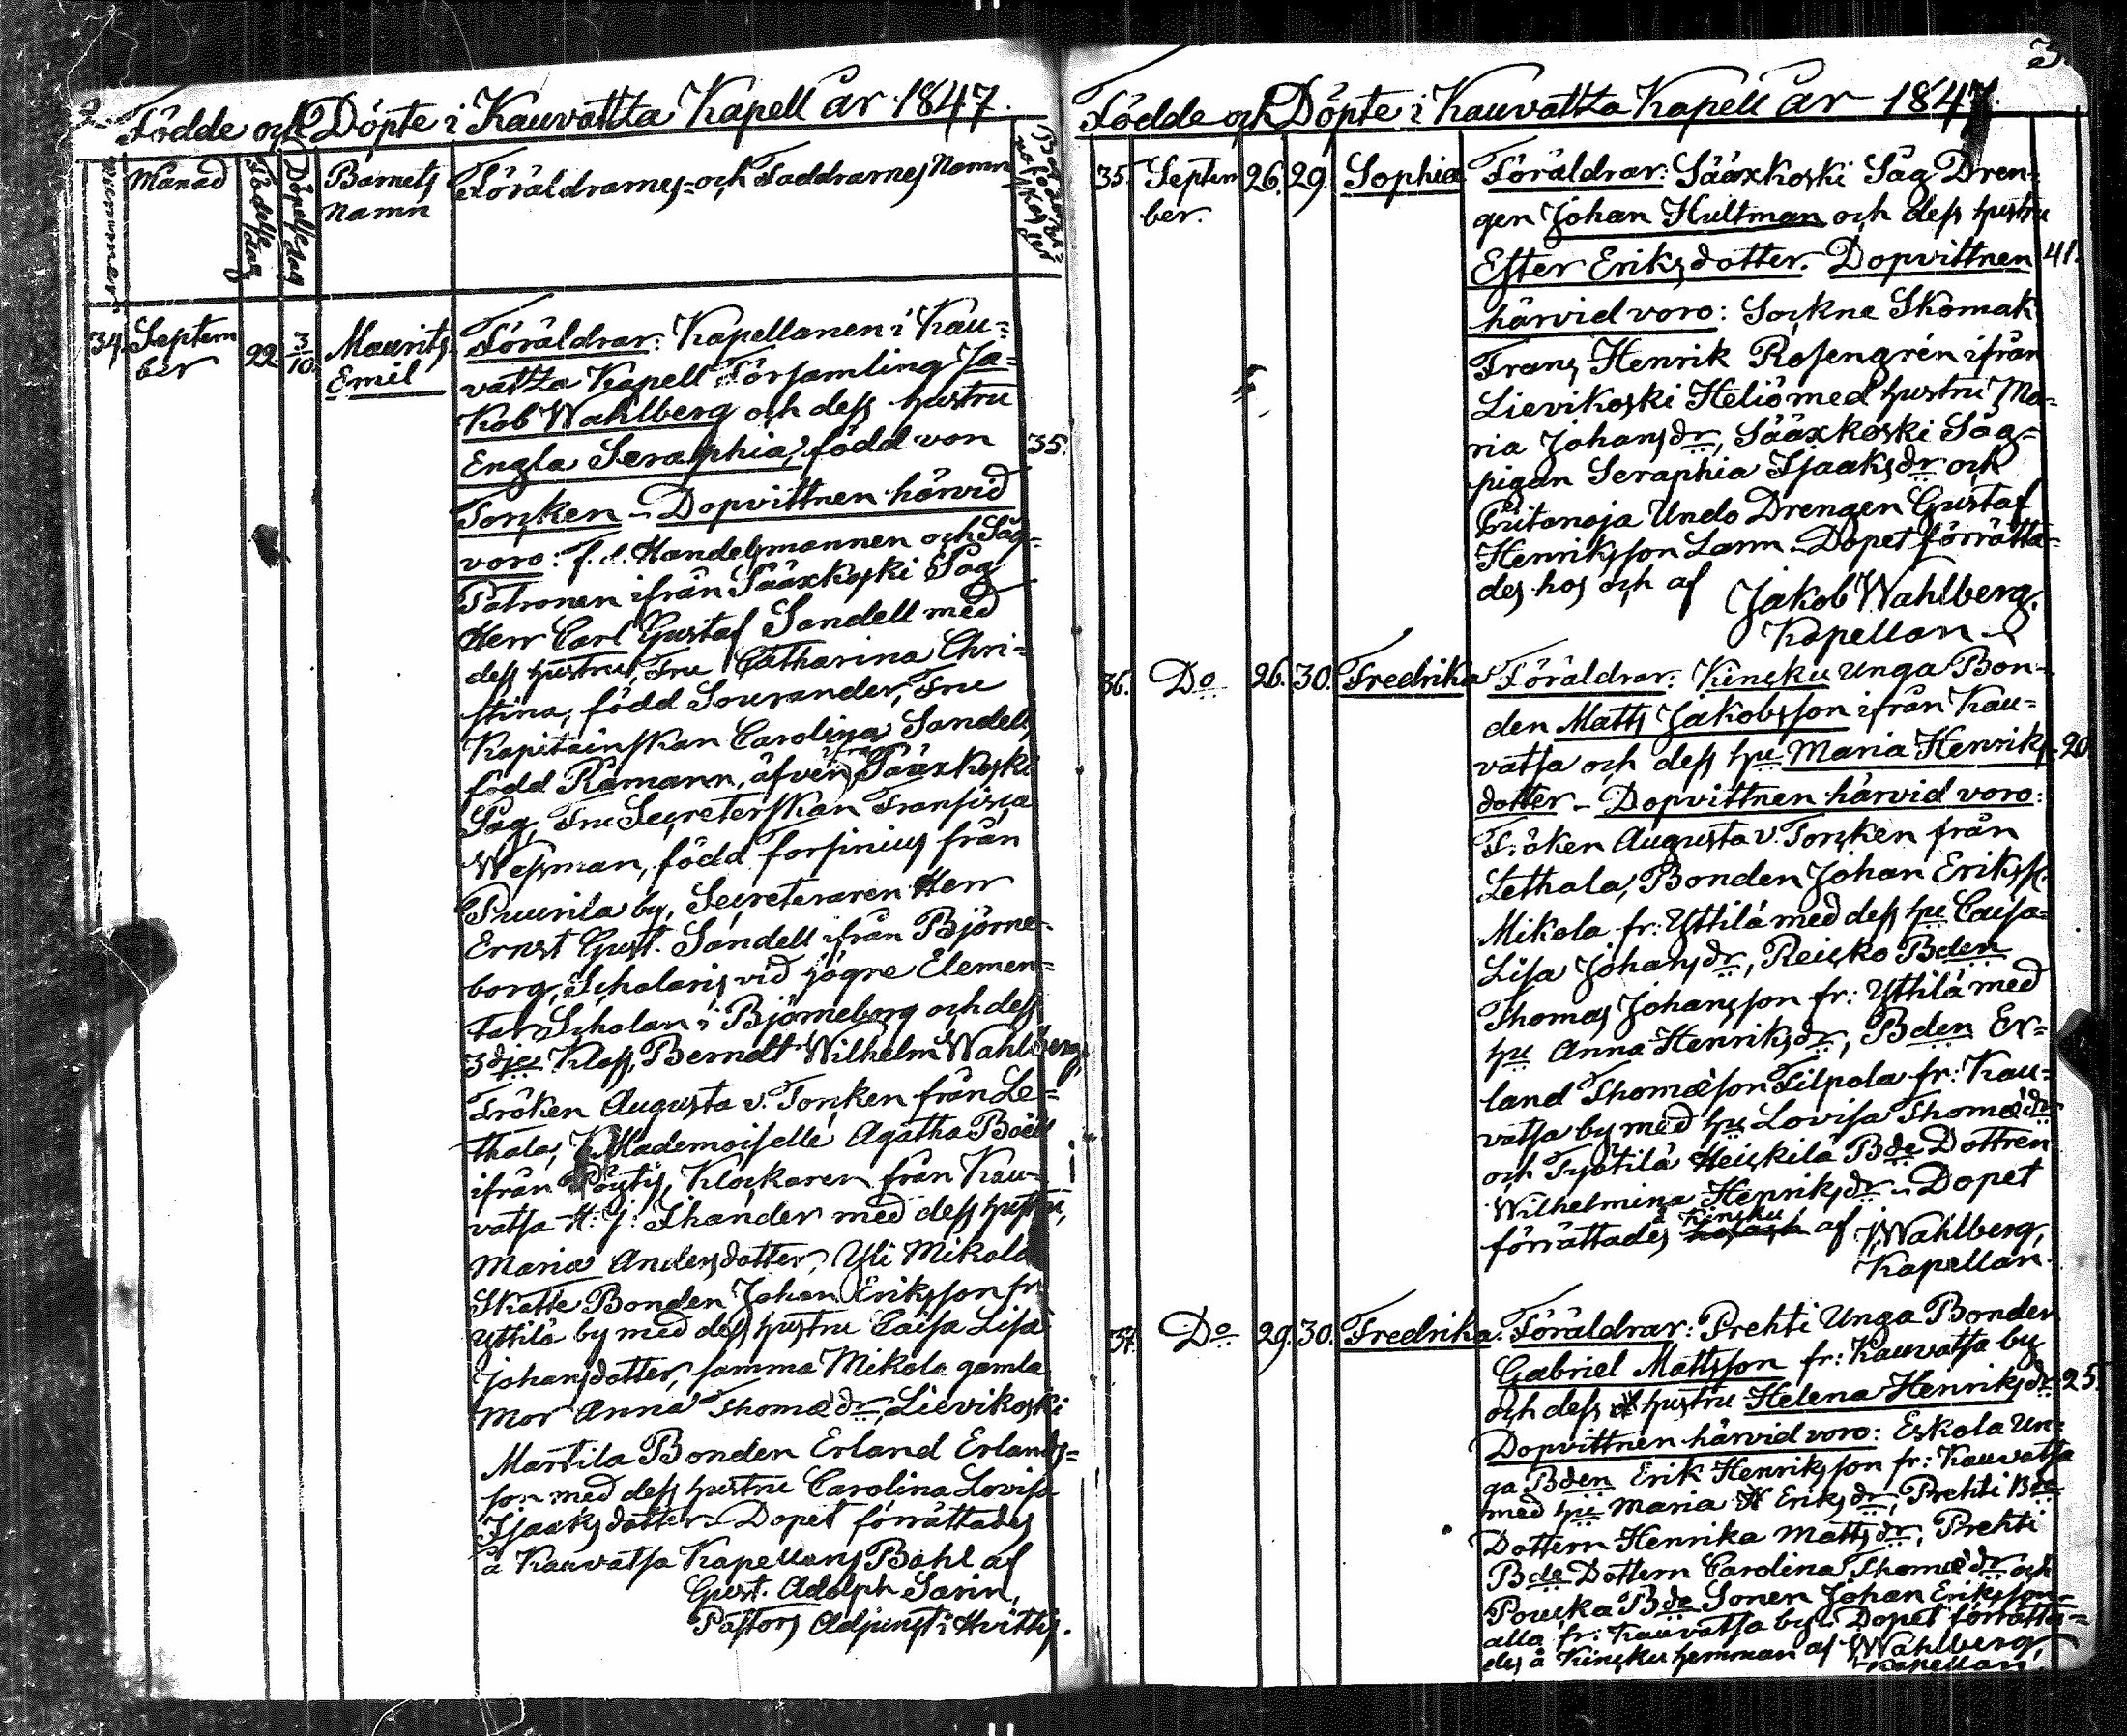 2.
Födde och Döpte i Kauvattta Kapell År 1847.
Månad
Födelse dag
Döpelse dag
Barnets namn
Föräldrarnes- och Faddrarnes Namn
34. Septem 22. 3/10. Maurits Föräldrar: Kapellanen i Kau=
ber Emil vattta Kapell Församling Ja=
kob Wahlberg och dess hustru
Engla Seraphia, född von 35.
Torcken - Dopvittnen härvid
voro: f. d. Handelsmannen och Såg=
Patronen ifrån Sääxkoski Såg
Herr Carl Gustaf Sandell med
dess hustru, Fru Catharina Chri=
stina, född Sourander, Fru
Kapitainskan Carolina Sandell,
född Råmann, äfven ifrån Sääxkoski
Såg, Fru Secreterskan Fransisca
Wessman, född Forsinius från
Puurila by, Secreteraren Herr
Ernst Gust. Sandell ifrån Björne-
borg, Scholaris vid högre Elemen=
tar Scholan i Björneborg och dess
3dje Klass, Berndt Wilhelm Wahlberg,
Fröken Augusta v. Torcken från Le=
thala, Mademoiselle Agatha Boëll
ifrån Pöytis, Klockaren från Kau-
vatsa H: J: Ihander med dess hustru,
Maria Andersdotter, Yli Mikola
Skatte Bonden Johan Eriksson fr
Yttilä by med dess hustru Caisa Lisa
Johansdotter, samma Mikola gamla
Mor Anna Thomædr, Lievikoski
Martila Bonden Erland Erlands=
son med dess hustru Carolina Lovisa
Isaaksdotter - Dopet förrättades
å Kauvatsa Kapellans Bohl af
Gust. Adolph Sarin,
Pastors Adjunct i Hvittis.
3.
Födde och Döpte i Kauvattta Kapell År 1847.
35. Septem 26. 29. Sophia Föräldrar: Sääxkoski Såg Dren=
ber. gen Johan Hultman och dess hustru
Ester Eriksdotter. Dopvittnen 41.
härvid voro: Sockne Skomak.
Frans Henrik Rosengrén ifrån
Lievikoski Heliö med hustru Ma=
ria Johansdr, Sääxkoski Såg=
pigan Seraphia Isaaksdr och
Undo Drengen Gustaf
Henriksson Lann. Dopet förrätta-
des hos och af Jakob Wahlberg.
Kapellan.
36. Do 26. 30. Fredrika Föräldrar: Kincku Unga Bon=
den Matts Jakobsson ifrån Kau=
vatsa och dess hu Maria Henriks- 20
dotter - Dopvittnen härvid voro:
Fröken Augusta v. Torcken från
Lethala, Bonden Johan Erikss.
Mikola fr: Yttilä med dess hu Caisa=
Lisa Johansdr, Reicko Bden
Thomas Johansson fr: Yttilä med
hu Anna Henriksdr, Bden Er=
land Thomæson Filpola fr: Kau=
vatsa by med hu Lovisa Thomædr
och Työtilä Heickilä Bde Dottren
Wilhelmina Henriksdr - Dopet
förrättades å Kincku af J. Wahlberg,
Kapellan.
37. Do 29. 30. Fredrika. Föräldrar: Prehti Unga Bonden
Gabriel Mattsson fr: Kauvatsa by
och dess hustru Helena Henriksdr 25.
Dopvittnen härvid voro: Eskola Un=
ga Bden Erik Henriksson fr: Kauvatsa
med hu Maria Eriksdr, Prehti Bde
Dottern Henrika Mattsdr, Prehti
Bde Dottern Carolina Thomædr och
Poucka Bde Sonen Johan Eriksson
alla fr: Kauvatsa by. Dopet förrätta=
des å Kincku hemman af J. Wahlberg,
Kapellan.